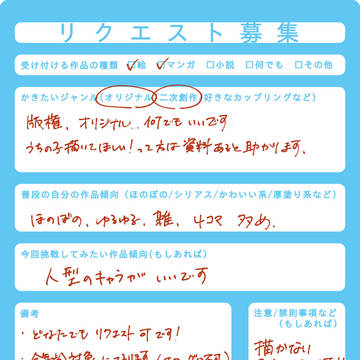 リクエスト募集
受け付ける作品の種類 ☑絵 ☑マンガ □小説 □何でも □その他
かきたいジャンル(オリジナル、二次創作、好きなカップリングなど)
版権、オリジナル..何でもいいです
うちの子描いてほしい!って方は資料あると助かります、
普段の自分の作品傾向(ほのぼの/シリアス/かわいい系/厚塗り系など)
ほのぼの、ゆるゆる、雑、4コマ 多め、
今回挑戦してみたい作品傾向(もしあれば)
人型のキャラが いいです
備考
・どなたでも リクエスト可です!
注意/禁則事項など
(もしあれば)
描かない